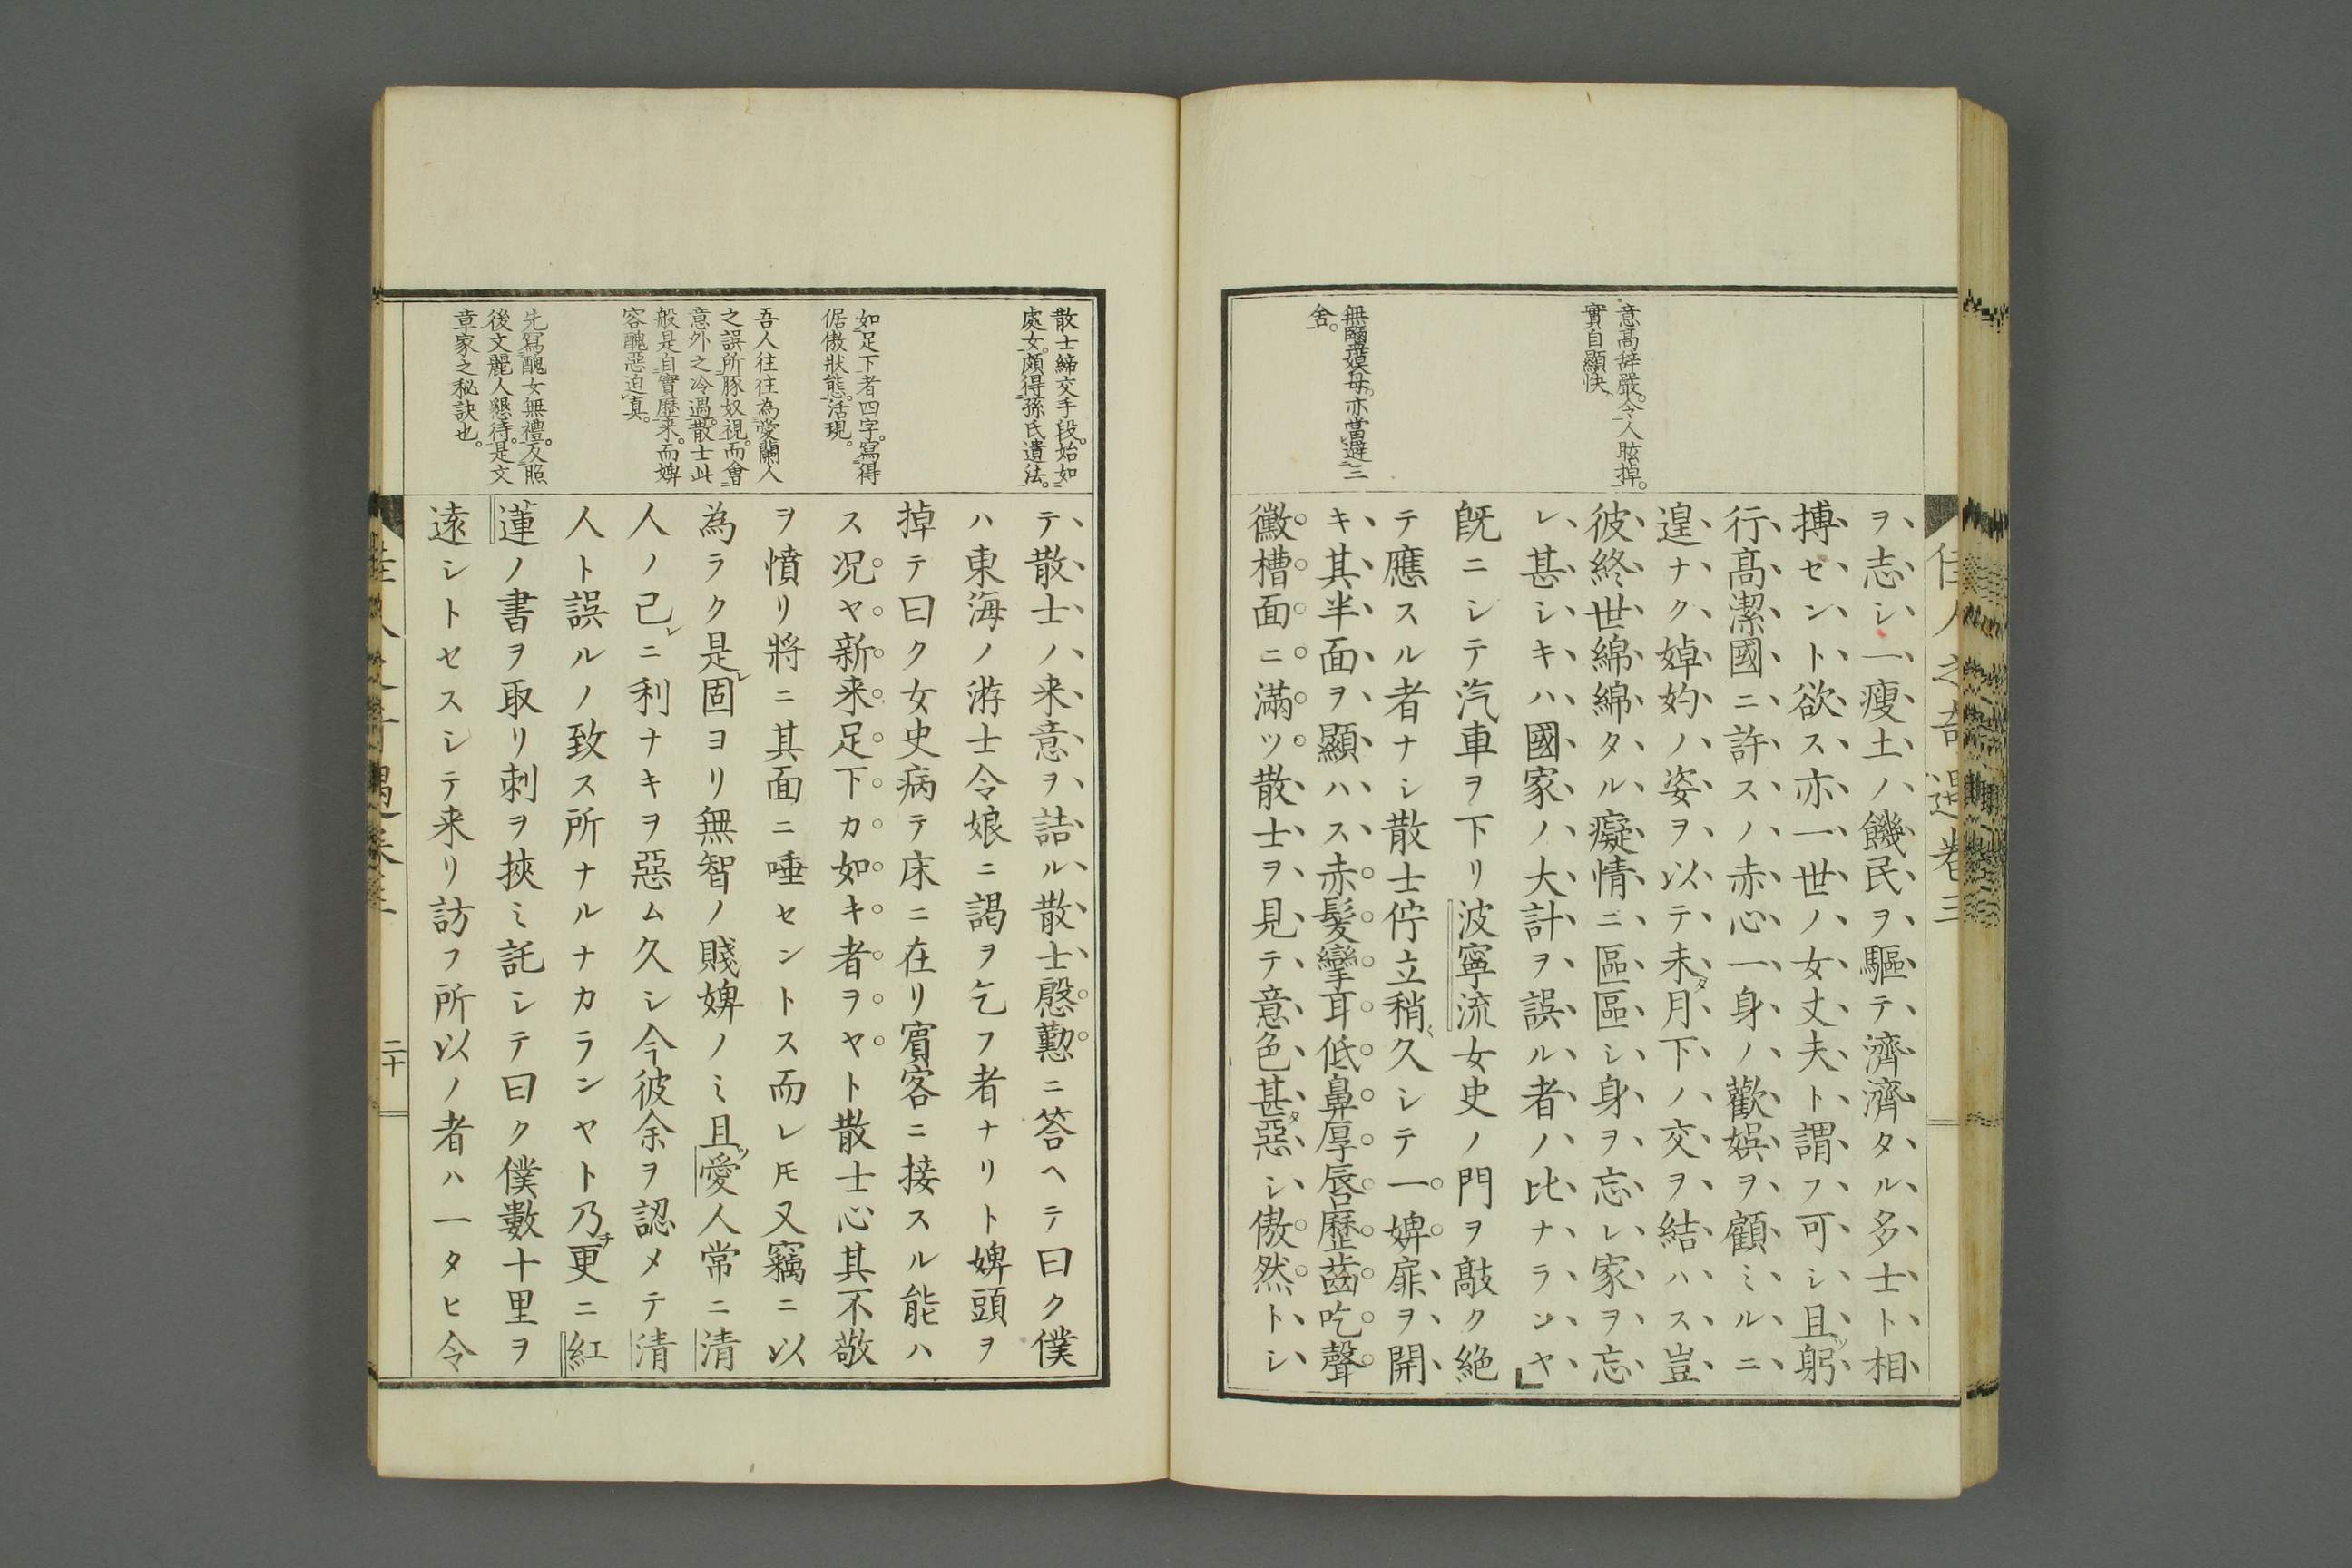 佳人之奇遇卷三
意高辞嚴。令人眩掉。
實自顯快、
無鹽嫫母。亦當避三
舍。
ヲ志シ一瘦土ノ饑民ヲ驅テ濟濟タル多士ト相
搏ゼント欲ス亦一世ノ女丈夫ト謂フ可シ且ツ躬
行高潔國ニ許スノ赤心一身ノ歡娯ヲ顧ミルニ
遑ナク婥妁ノ姿ヲ以テ未タ月下ノ交ヲ結ハス豈
彼終世綿綿タル癡情ニ區區シ身ヲ忘レ家ヲ忘
レ甚シキハ國家ノ大計ヲ誤ル者ノ比ナランヤ」
既ニシテ汽車ヲ下リ波寧流女史ノ門ヲ敲ク絶
テ應スル者ナシ散士佇立稍〻久シテ一婢扉ヲ開
キ其半面ヲ顯ハス赤髮攣耳低鼻厚唇歷齒吃聲
黴槽面ニ滿ツ散士ヲ見テ意色甚タ惡シ傲然トシ
散士締交手段。始如
處女。頗得孫氏遺法。
如足下者四字。寫得
倨傲狀態。活現。
吾人往往為愛蘭人
之誤所豚奴視。而會
意外之冷遇。散士此
般是自實歷来。而婢
容醜惡迫真。
先寫醜女無禮。反照
後文麗人懇待。是文
章家之秘訣也。
テ散士ノ来意ヲ詰ル散士慇懃ニ答ヘテ曰ク僕
ハ東海ノ游士令娘ニ謁ヲ乞フ者ナリト婢頭ヲ
掉テ曰ク女史病テ床ニ在リ賓客ニ接スル能ハ
ス况ヤ新来足下カ如キ者ヲヤト散士心其不敬
ヲ憤リ將ニ其面ニ唾セントス而レ𪜈又竊ニ以
為ラク是レ固ヨリ無智ノ賤婢ノミ且ツ愛人常ニ清
人ノ己レニ利ナキヲ惡ム久シ今彼余ヲ認メテ清
人ト誤ルノ致ス所ナルナカランヤト乃チ更ニ紅
蓮ノ書ヲ取リ刺ヲ挾ミ託シテ曰ク僕數十里ヲ
遠シトセスシテ来リ訪フ所以ノ者ハ一タヒ令
二十